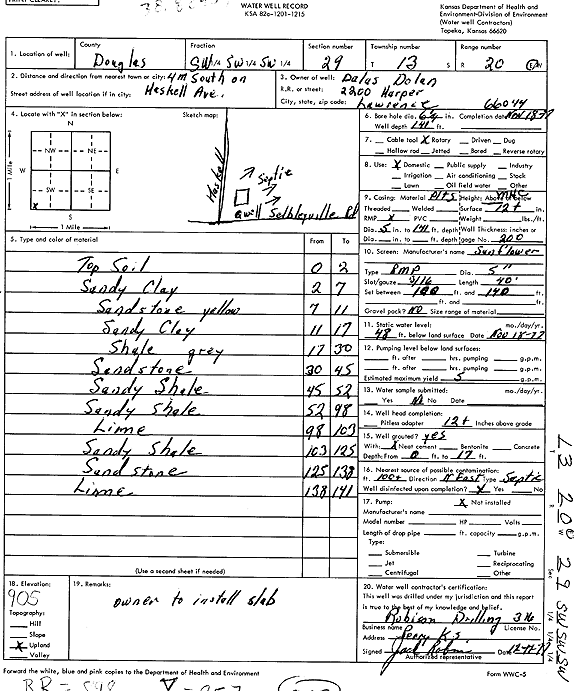 WATER WELL RECORD
KSA 82a-1201-1215
Kansas Department of Health and
Environment-Division of Environment
(Water well Contractors)
Topeka, Kansas 66620
1. Location of well: County Douglas Fraction SW 1/4 SW 1/4 SW 1/4 Section number 29 Township number T 13 S Range number R 20 E/W
2. Distance and direction from nearest town or city: 4m South on
Street address of well location if in city: Haskell Ave.
3. Owner of well: Dalus Dolan
R.R. or street: 2200 Harper
City, state, zip code: Lawrence 66044
4. Locate with "X" in section below: Sketch map:
N
NW NE
W E
SW SE
X
S
1 Mile
1 Mile
Haskell
Septic
well
6. Bore hole dia. in. Completion date Nov 18-77
Well depth 141 ft.
7. Cable tool X Rotary Driven Dug
Hollow rod Jetted Bored Reverse rotary
8. Use: X Domestic Public supply Industry
Irrigation Air conditioning Stock
Lawn Oil field water Other
9. Casing: Material Height: Above or below
Threaded Welded Surface 12+ in.
RMP X PVC Weight lbs./ft.
Dia. 5 in. to 141 ft. depth Wall Thickness: inches or
Dia. in. to ft. depth gage No. 200
10. Screen: Manufacturer's name Sunflower
Type RMP Dia. 5"
Slot/gauze 3/16 Length 40'
Set between 100 ft. and 140 ft.
ft. and ft.
Gravel pack? No Size range of material
11. Static water level: mo./day/yr.
48 ft. below land surface Date Nov 18-77
12. Pumping level below land surfaces:
ft. after hrs. pumping g.p.m.
ft. after hrs. pumping g.p.m.
Estimated maximum yield 5 g.p.m.
13. Water sample submitted: mo./day/yr.
Yes No Date
14. Well head completion:
Pitless adapter 12+ Inches above grade
15. Well grouted? yes
With: X Neat cement Bentonite Concrete
Depth: From 0 ft. to 17 ft.
16. Nearest source of possible contamination:
ft. 100+ Direction N East Type Septic
Well disinfected upon completion? X Yes No
17. Pump: X Not installed
Manufacturer's name
Model number HP Volts
Length of drop pipe ft. capacity g.p.m.
Type:
Submersible Turbine
Jet Reciprocating
Centrifugal Other
5. Type and color of material From To
Top Soil 0 2
Sandy Clay 2 7
Sandstone yellow 7 11
Sandy Clay 11 17
Shale grey 17 30
Sandstone 30 45
Sandy Shale 45 52
Sandy Shale 52 98
Lime 98 103
Sandy Shale 103 125
Sandstone 125 138
Lime 138 141
(Use a second sheet if needed)
18. Elevation:
905
Topography:
Hill
Slope
X Upland
Valley
19. Remarks:
owner to install slab
20. Water well contractor's certification:
This well was drilled under my jurisdiction and this report
is true to the best of my knowledge and belief.
Robison Drilling 316
Business name License No.
Address Perry Ks.
Signed Jack Date
Authorized representative
Forward the white, blue and pink copies to the Department of Health and Environment
Form WWC-5
13 20 W 29 SW SW SW